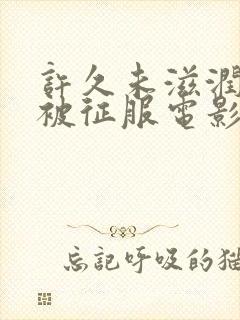 許久未滋潤
被征服電影
忘記呼吸的猫